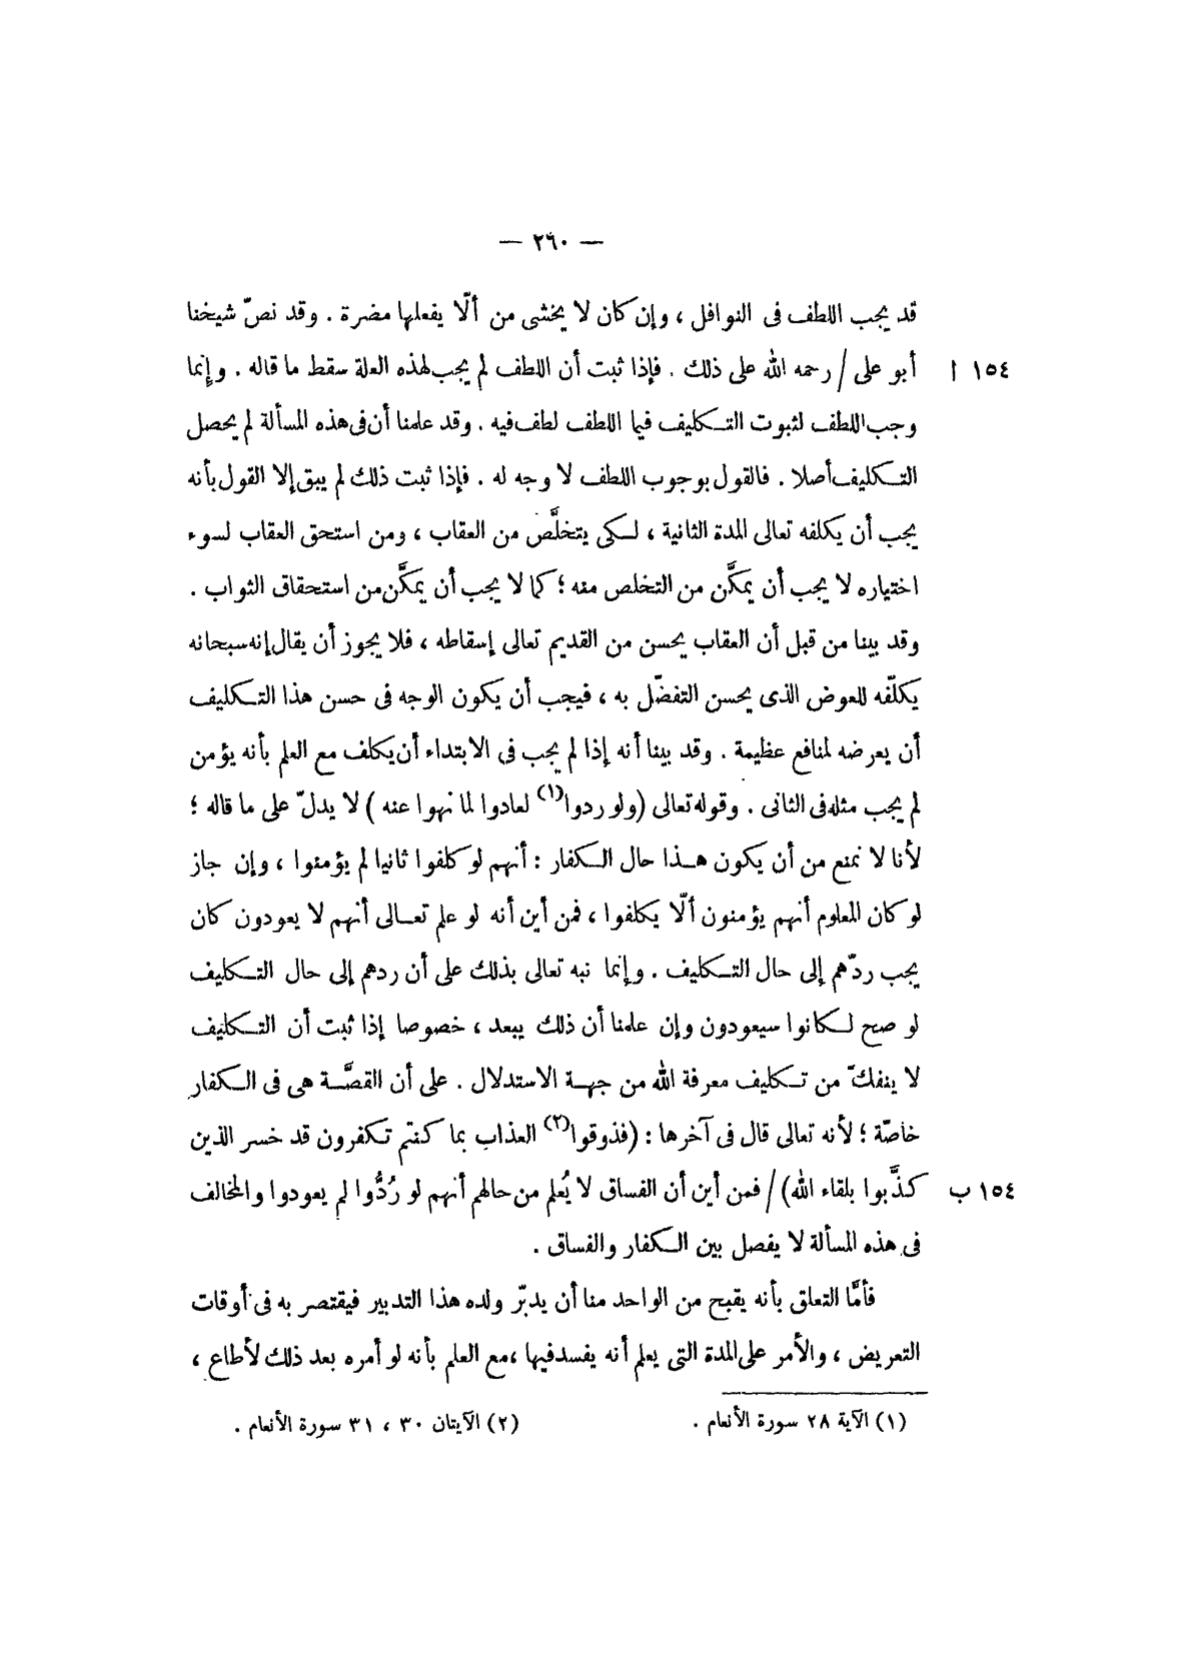 — ٢٦٠ —
قد يجب اللطف فى النوافل ، وإن كان لا يخشى من ألّا يفعلها مضرة . وقد نصّ شيخنا
١٥٤ ا أبو على / رحمه الله على ذلك . فإذا ثبت أن اللطف لم يجب لهذه العلة سقط ما قاله . وإنما
وجب اللطف لثبوت التكليف فيما اللطف لطف فيه . وقد علمنا أن فى هذه المسألة لم يحصل
التكليف أصلا . فالقول بوجوب اللطف لا وجه له . فإذا ثبت ذلك لم يبق إلا القول بأنه
يجب أن يكلفه تعالى المدة الثانية ، لكى يتخلَّص من العقاب ، ومن استحق العقاب لسوء
اختياره لا يجب أن يمكَّن من التخلص منه ؛ كما لا يجب أن يمكَّن من استحقاق الثواب .
وقد بينا من قبل أن العقاب يحسن من القديم تعالى إسقاطه ، فلا يجوز أن يقال إنه سبحانه
يكلّفه للعوض الذى يحسن التفضّل به ، فيجب أن يكون الوجه فى حسن هذا التكليف
أن يعرضه لمنافع عظيمة . وقد بينا أنه إذا لم يجب فى الابتداء أن يكلف مع العلم بأنه يؤمن
لم يجب مثله فى الثانى . وقوله تعالى (ولو ردوا(١) لعادوا لما نهوا عنه ) لا يدلّ على ما قاله ؛
لأنا لا نمنع من أن يكون هذا حال الكفار : أنهم لو كلفوا ثانيا لم يؤمنوا ، وإن جاز
لو كان المعلوم أنهم يؤمنون ألّا يكلفوا ، فمن أين أنه لو علم تعالى أنهم لا يعودون كان
يجب ردّهم إلى حال التكليف . وإنما نبه تعالى بذلك على أن ردهم إلى حال التكليف
لو صح لكانوا سيعودون وإن علمنا أن ذلك يبعد ، خصوصا إذا ثبت أن التكليف
لا ينفكّ من تكليف معرفة الله من جهة الاستدلال . على أن القصَّة هى فى الكفار
خاصّة ؛ لأنه تعالى قال فى آخرها : (فذوقوا(٢) العذاب بما كنتم تكفرون قد خسر الذين
١٥٤ ب كذَّبوا بلقاء الله) / فمن أين أن الفساق لا يُعلم من حالهم أنهم لو رُدُّوا لم يعودوا والمخالف
فى هذه المسألة لا يفصل بين الكفار والفساق .
فأمَّا التعلق بأنه يقبح من الواحد منا أن يدبّر ولده هذا التدبير فيقتصر به فى أوقات
التعريض ، والأمر على المدة التى يعلم أنه يفسد فيها ، مع العلم بأنه لو أمره بعد ذلك لأطاع ،
(١) الآية ٢٨ سورة الأنعام . (٢) الآيتان ٣٠ ، ٣١ سورة الأنعام .